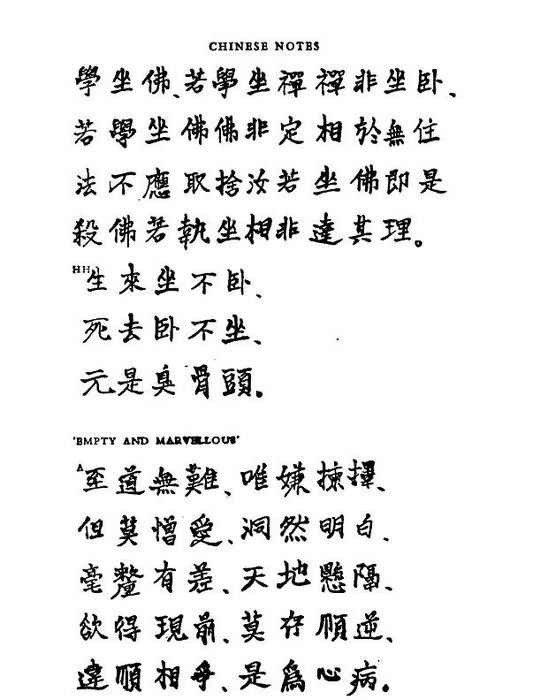 CHINESE NOTES
學坐佛、若學坐禪禪非坐卧、
若學坐佛佛非定相於無住
法不應取捨汝若坐佛即是
殺佛若執坐相非達其理。
HH生來坐不卧、
死去卧不坐、
元是臭骨頭。
'EMPTY AND MARVELLOUS'
A至道無難、唯嫌揀擇、
但莫憎愛、洞然明白、
毫釐有差、天地懸隔、
欲得現前、莫存順逆、
違順相爭、是爲心病。